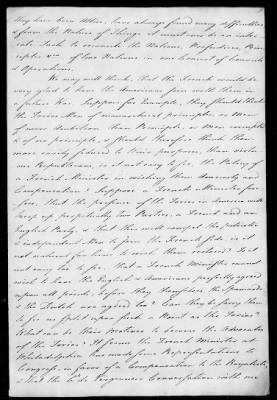 they have been Allies, have always found many difficulties
& from the Nature of Things it must ever be an intri-
cate Task to reconcile the Notions, Prejudices, Prin-
ciples &ca of two Nations in one Concert of Councils
& Operations.
We may well think, that the French would be
very glad to have the Americans join with them in
a future War. Suppose for Example, they should think
the Tories Men of monarchical principles, or Men
of more Ambition than Principle, or Men corrupted
& of no principle, & should therefore think them
more easily seduced to their purposes, than virtu-
ous Republicans, is it not easy to see the Policy of
a French Minister in wishing them Amnesty and
Compensation? Suppose a French Minister fore-
sees, that the presence of the Tories in America will
keep up perpetually two Parties, a French and an
English Party, & that this will compel the patriotic
& independent Men to join the French side, is it
not natural for him to wish them restored? Is it
not easy to see, that a French Minister cannot
wish to have the English & Americans perfectly agreed
upon all points, before they themselves, the Spaniards
& the Dutch are agreed too? Can they be sorry then
to see us split upon such a Point as the Tories?
What can be their motives to become the Advocates
of the Tories? It seems the French Minister at
Philadelphia has made some Representations to
Congress, in favor of a Compensation to the Royalists
& that the C. de Vergennes Conversation with me